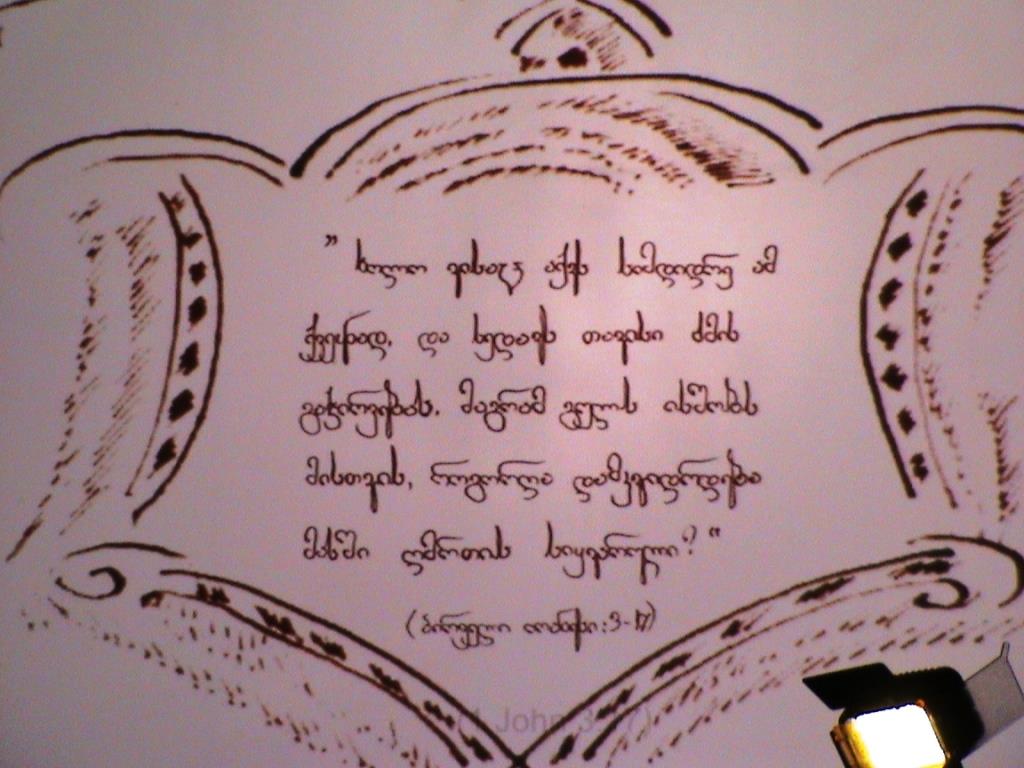 ” ხოლო ვისაც აქვს სიმდიდრე ამ
ქვეყნად, და ხედავს თავისი ძმის
გაჭირვებას, მაგრამ გულს იხშობს
მისთვის, როგორღა დამკვიდრდება
მასში ღმრთის სიყვარული? “
(პირველი იოანესი:3-17)
(1 John 3:17)